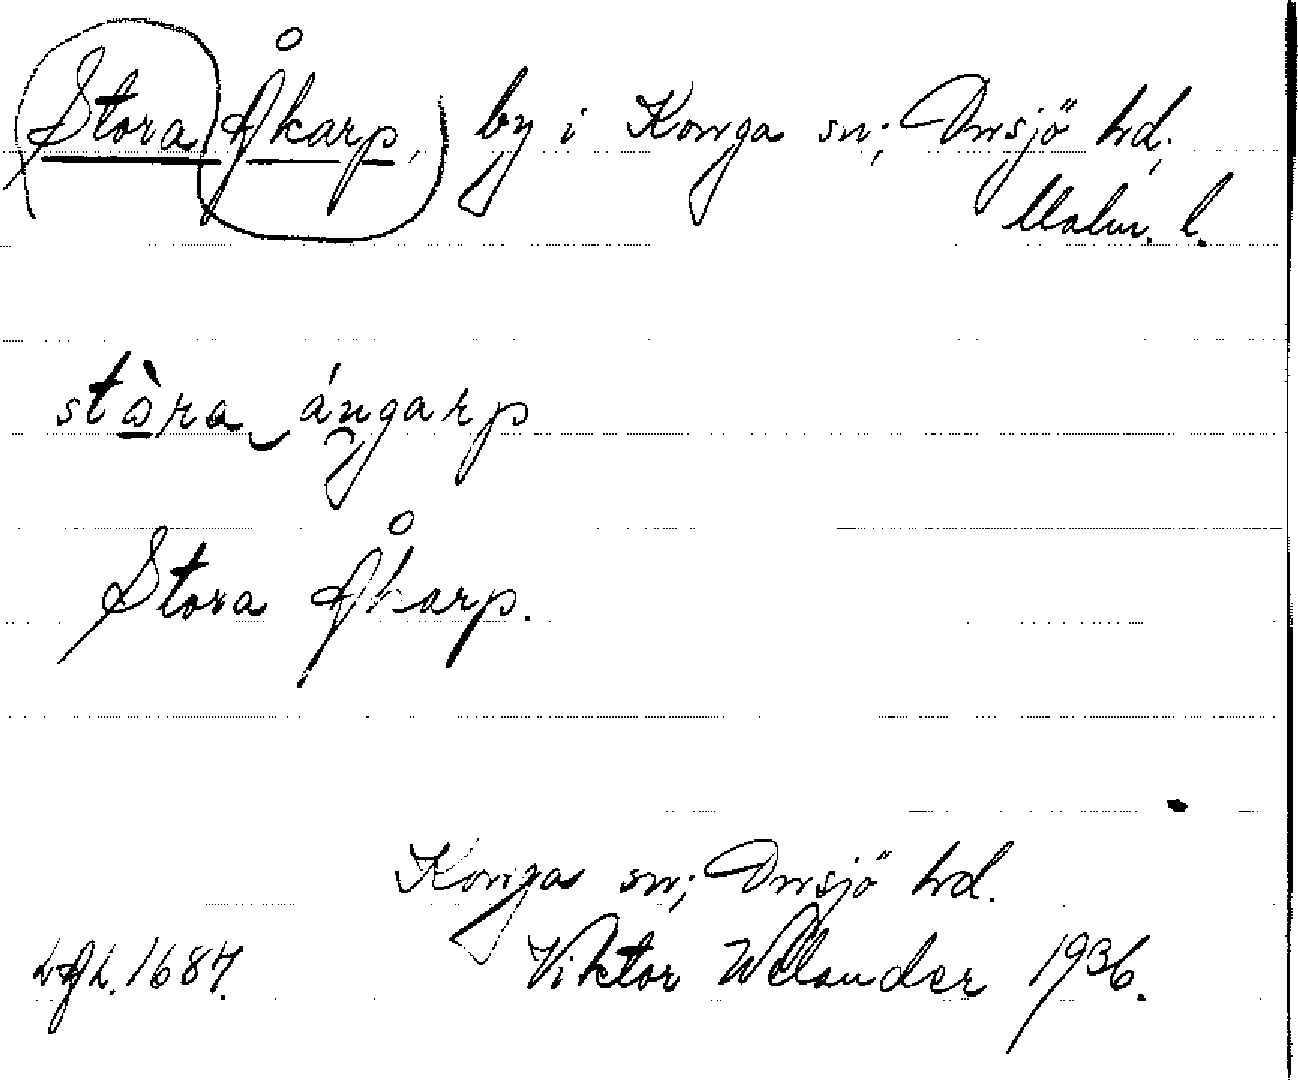 Stora Åkarp, by i Konga sn; Onsjö hd,
Malm. l.
stòra ángarp
Stora Åkarp.
Konga sn; Onsjö hd.
Viktor Welander 1936.